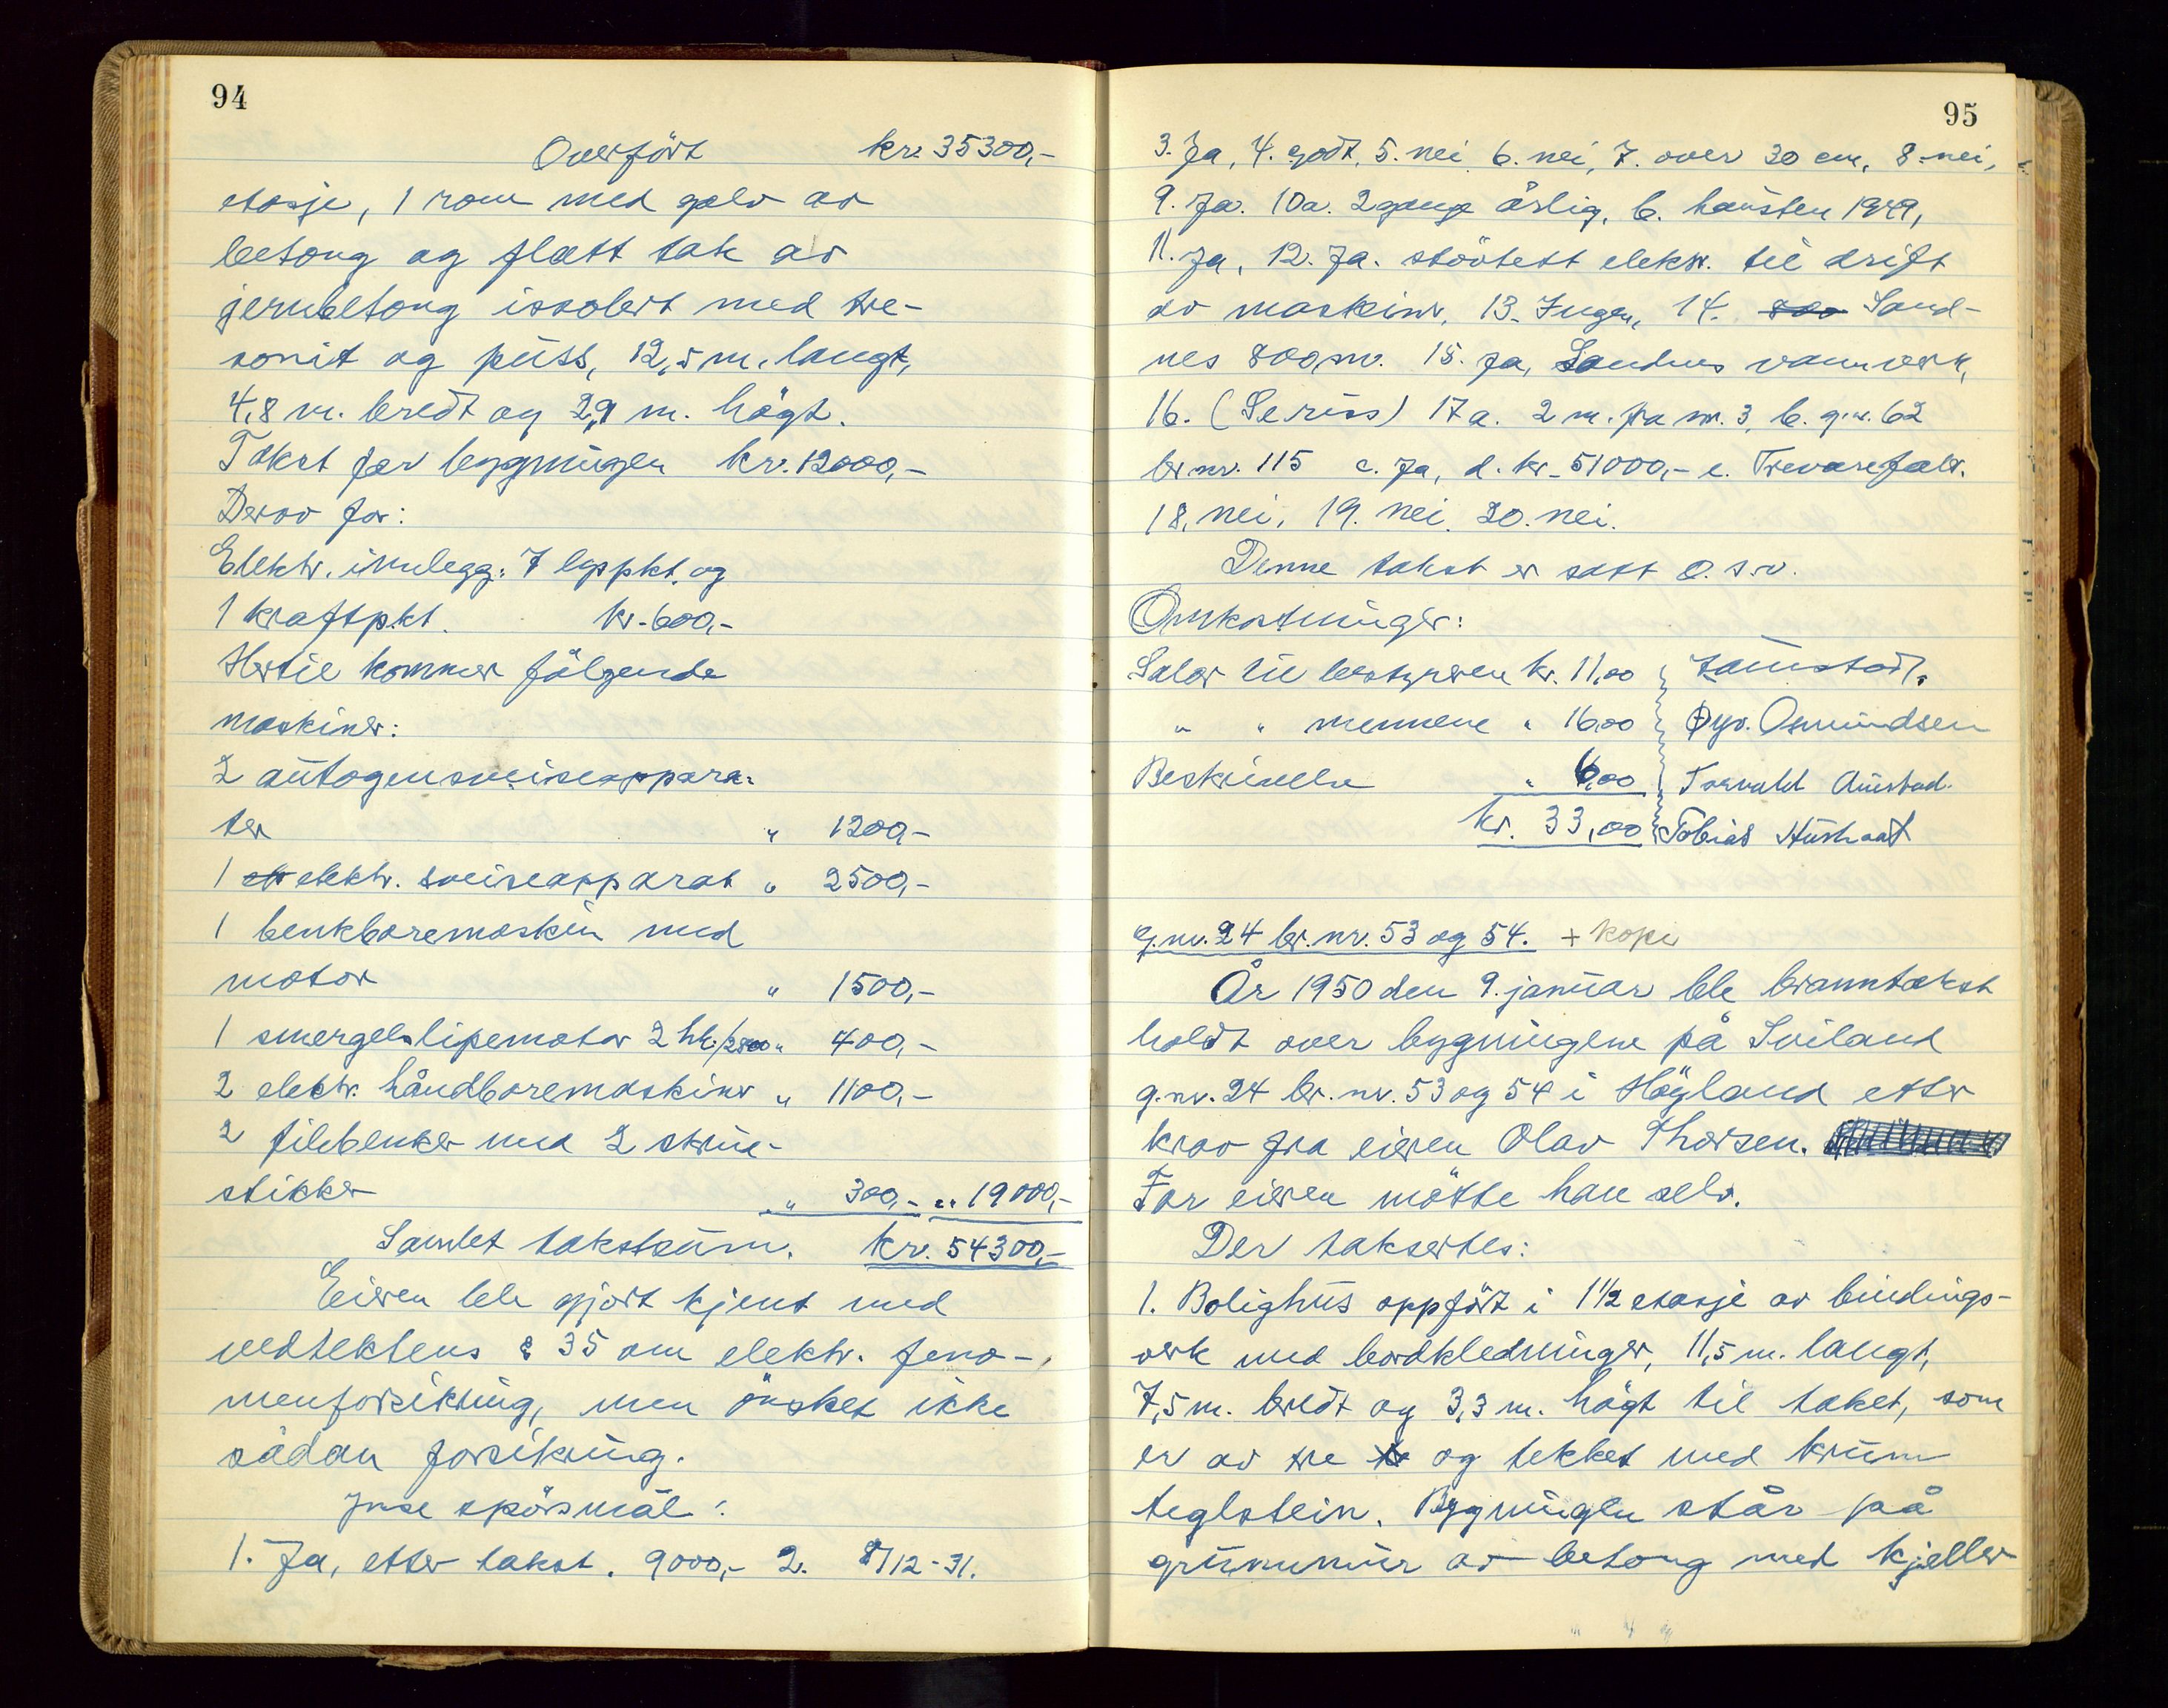 94
Overfört kr. 35300,-
etasje, 1 rom med golv av
betong og flatt tak av
jernbetong issolert med tre-
sonit og puss, 12,5 m. langt,
4,8 m. bredt og 2,9 m. högt.
Takst for bygningen kr. 12000,-
Derav for:
Elektr. innlegg: 7 lyspkt. og
1 kraftpkt. kr. 600,-
Hertil kommer fölgende
maskiner:
2 autogensveiseappara-
ter " 1200,-
1 elektr. sveiseapparat " 2500,-
1 benkboremaskin med
motor " 1500,-
1 smergelslipemotor 2 hk/2800 " 400,-
2 elektr. håndboremaskiner " 1100,-
2 filebenker med 2 skrue-
stikker " 300,- " 19000,-
Samlet takstsum. kr. 54300,-
Eieren ble gjort kjent med
vedtektens § 35 om elektr. feno-
menforsikring, men önsket ikke
sådan forsikring.
Jnse spörsmål:
1. Ja, etter takst. 9000,- 2. 8/12-31.
95
3. Ja, 4. godt, 5. nei, 6. nei, 7. over 30 cm, 8. nei,
9. Ja. 10a. 2 gange årlig, b. hausten 1949,
11. Ja, 12. Ja. stöötett elektr. til drift
av maskiner, 13. Ingen, 14. Sand-
nes 800 m. 15. Ja, Sandnes vannverk,
16. (Se riss) 17a. 2 m. fra nr. 3, b. g.nr. 62
br.nr. 115 c. Ja, d. kr. 51000,- e. Trevarefabr.
18. nei, 19. nei, 20. nei.
Denne takst er satt o.s.v.
Omkostninger:
Salær til bestyreren kr. 11,00 Austad.
" " mennene " 16,00 Øyv. Osmundsen
Beskrivelse " 6,00 Torvald Austad.
kr. 33,00 Tobias Hushaat
g.nr. 24 br. nr. 53 og 54. + kopi
År 1950 den 9. januar ble branntakst
holdt over bygningene på Sviland
g.nr. 24 br. nr. 53 og 54 i Högland etter
krav fra eieren Olav Thorsen.
For eieren mötte han selv.
Der takserted:
1. Bolighus oppfört i 1 1/2 etasje av bindings-
verk med bordkledninger, 11,5 m. langt,
7,5 m. bredt og 3,3 m. högt til taket, som
er av tre og tekket med krum
teglstein. Bygningen står på
grunnmur av betong med kjeller